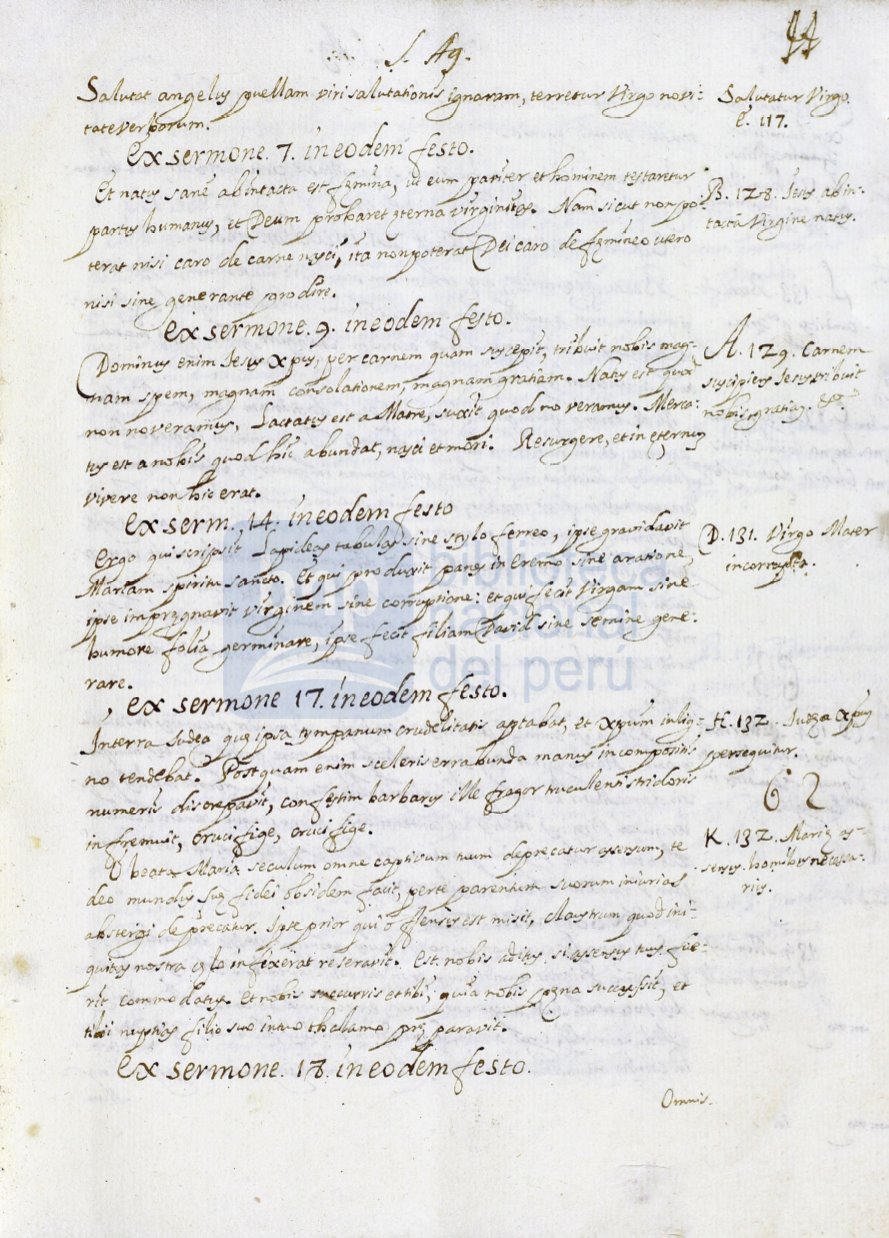 S. Ag.
44
Salutat angelus puellam viri salutationis ignaram, terretur Virgo novi-
tate verborum.
Salutatur Virgo.
E. 117.
Ex sermone. 7. in eodem festo.
Et natus sanè ab intacta est fęmina, ut eum pariter et hominem testaretur
partus humanus, et Deum probaret ęterna virginitas. Nam sicut non po-
terat nisi caro de carne nasci, ita non poterat Dei caro de fęmineo utero
nisi sine generante prodire.
B. 128. Jesus ab in-
tacta Virgine natus.
Ex sermone. 9. in eodem festo.
Dominus enim Iesus Xpus, per carnem quam suscepit, tribuit nobis mag-
nam spem, magnam consolationem, magnam gratiam. Natus est quod
non noveramus, Lactatus est a Matre, suxit quod no veramus. Merca-
tus est a nobis quod hic abundat, nasci et mori. Resurgere, et in ęternum
vivere non hic erat.
A. 129. Carnem
suscipiens Iesus tribuit
nobis gratiam. &c.
Ex serm. 14. in eodem festo
Ergo qui scripsit Lapideas tabulas sine stylo ferreo, ipse gravidavit
Mariam spiritu sancto. Et qui produxit panes in Eremo sine aratione,
ipse impręgnavit virginem sine corruptione: et qui fecit Virgam sine
humore folia germinare, ipse fecit filiam David sine semine gene-
rare.
D. 131. Virgo Mater
incorrupta.
Ex sermone 17. in eodem festo.
In terra Iudea quę ipsa tympanum crudelitatis aptabat, et Xpum in lig-
no tendebat. Post quam enim sceleris errabunda manus incompositis
numeris discrepavit, confestim barbarus ille fragor truculenti stridoris
infremuit, crucifige, crucifige.
H. 132. Iudęa Xpus
persequitur.
62
O beata Maria seculum omne captivum tuum deprecatur assensum, te
deo mundus suę fidei obsidem facit, per te parentum suorum iniurias
abstergi deprecatur. Ipse prior qui offensus est misit, claustrum quod ini-
quitas nostra cęlo infixerat reseravit. Est nobis aditus, si assensus tuus fue-
rit commodatus. Et nobis succurris et tibi, quia nobis pęna successit, et
tibi nuptias filio suo in tuo thalamo pręparavit.
K. 132. Marię as-
sensus hominibus necessa-
rius.
Ex sermone. 18. in eodem festo.
Omnis.
biblioteca
nacional
del perú